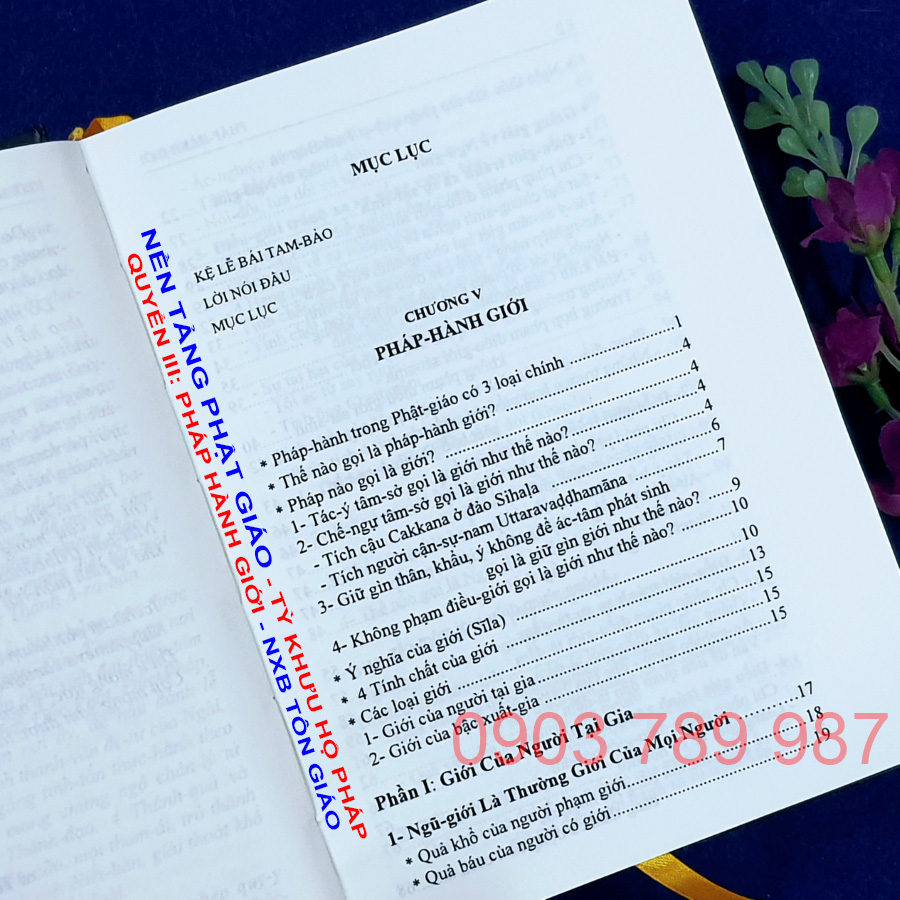 MỤC LỤC
KỆ LỄ BÁI TAM-BẢO
LỜI NÓI ĐẦU
MỤC LỤC
CHƯƠNG V
PHÁP-HÀNH GIỚI
* Pháp-hành trong Phật-giáo có 3 loại chính ........................ 1
* Thế nào gọi là pháp-hành giới? ........................ 4
* Pháp nào gọi là giới? ........................ 4
1- Tác-ý tâm-sở gọi là giới như thế nào? ........................ 4
2- Chế-ngự tâm-sở gọi là giới như thế nào? ........................ 4
- Tích cậu Cakkana ở đảo Sihaḷa ........................ 6
- Tích người cận-sự-nam Uttaravaḍḍhamāna ........................ 7
3- Giữ gìn thân, khẩu, ý không để ác-tâm phát sinh
gọi là giữ gìn giới như thế nào? ...... 9
4- Không phạm điều-giới gọi là giới như thế nào? ........... 10
* Ý nghĩa của giới (Sīla) ........................ 10
* 4 Tính chất của giới ........................ 13
* Các loại giới ........................ 15
1- Giới của người tại gia ........................ 15
2- Giới của bậc xuất-gia ........................ 15
Phần I: Giới Của Người Tại Gia
1- Ngũ-giới Là Thường Giới Của Mọi Người ............ 17
* Quả khổ của người phạm giới ........................ 18
* Quả báu của người có giới ........................ 19
NỀN TẢNG PHẬT GIÁO - TỲ KHƯU HỘ PHÁP
QUYỂN III: PHÁP HÀNH GIỚI - NXB TÔN GIÁO
0903 789 987